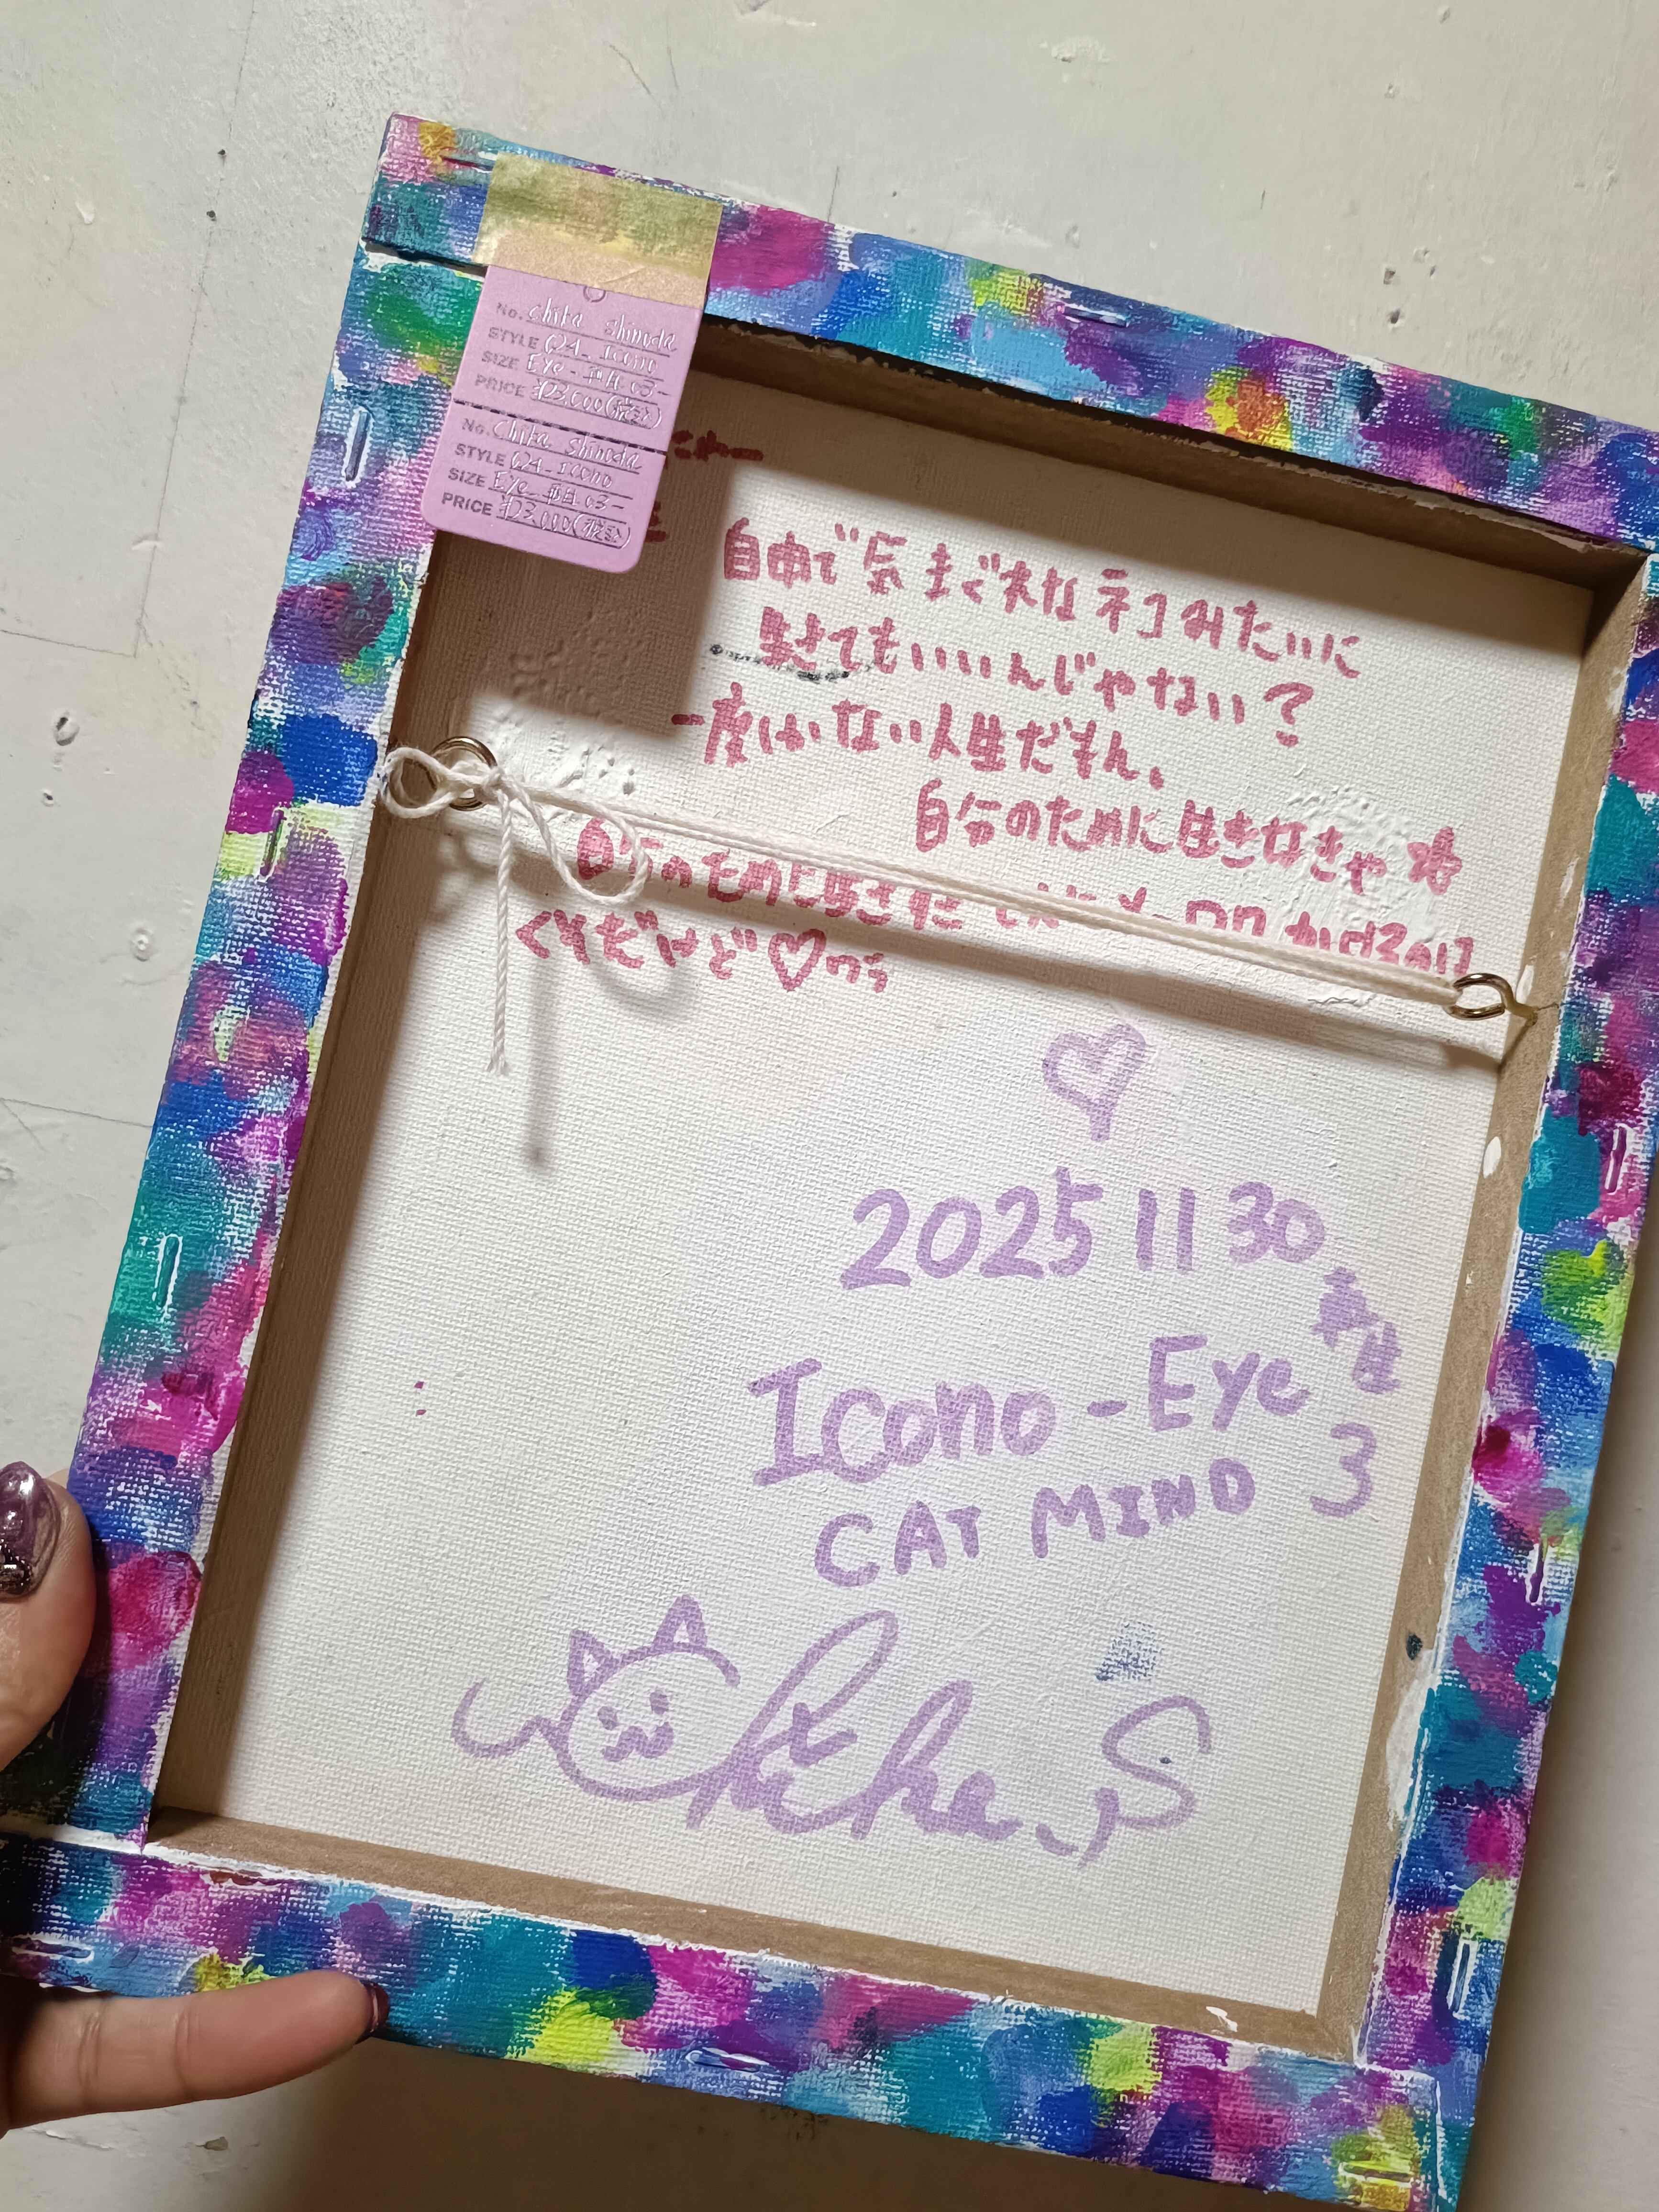 No. Chika Shinoda
STYLE 024_Icono
SIZE Eye-
PRICE ¥23,000(税込)
No. Chika Shinoda
STYLE 024_Icono
SIZE Eye_
PRICE ¥23,000(税込)
自由で気まぐれなネコみたいに
生きてもいいんじゃない?
一度しかない人生だもん、
自分のために生きなきゃ
自分のために生きた
くそだけど♡
2025 11 30
Icono-Eye
3
CAT MIND
Chika.S